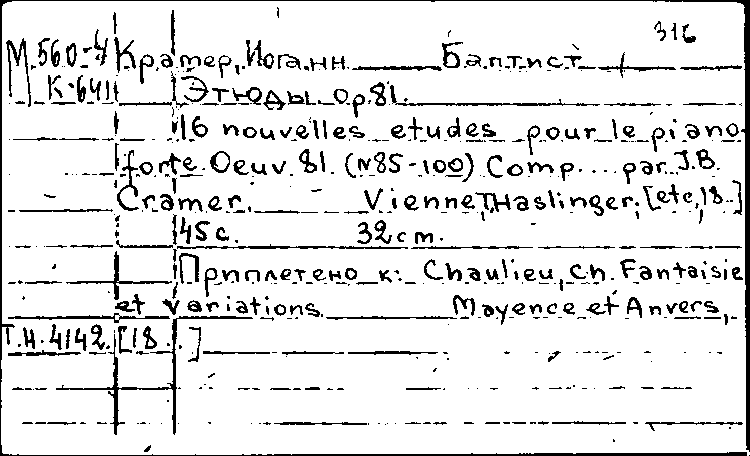 316
М.560-4 Крамер, Иоганн Баптист
К-641 Этюды. Op.81.
16 nouvelles etudes pour le piano-
forte Oeuv. 81. (N85-100) Comp... par J.B.
Cramer. Vienne, T.Haslinger; [etc, 18..]
45 с. 32 cm.
Приплетено к: Chaulieu, Ch. Fantaisie
et variations Mayence et Anvers,
Т.Н.4142. [18..]